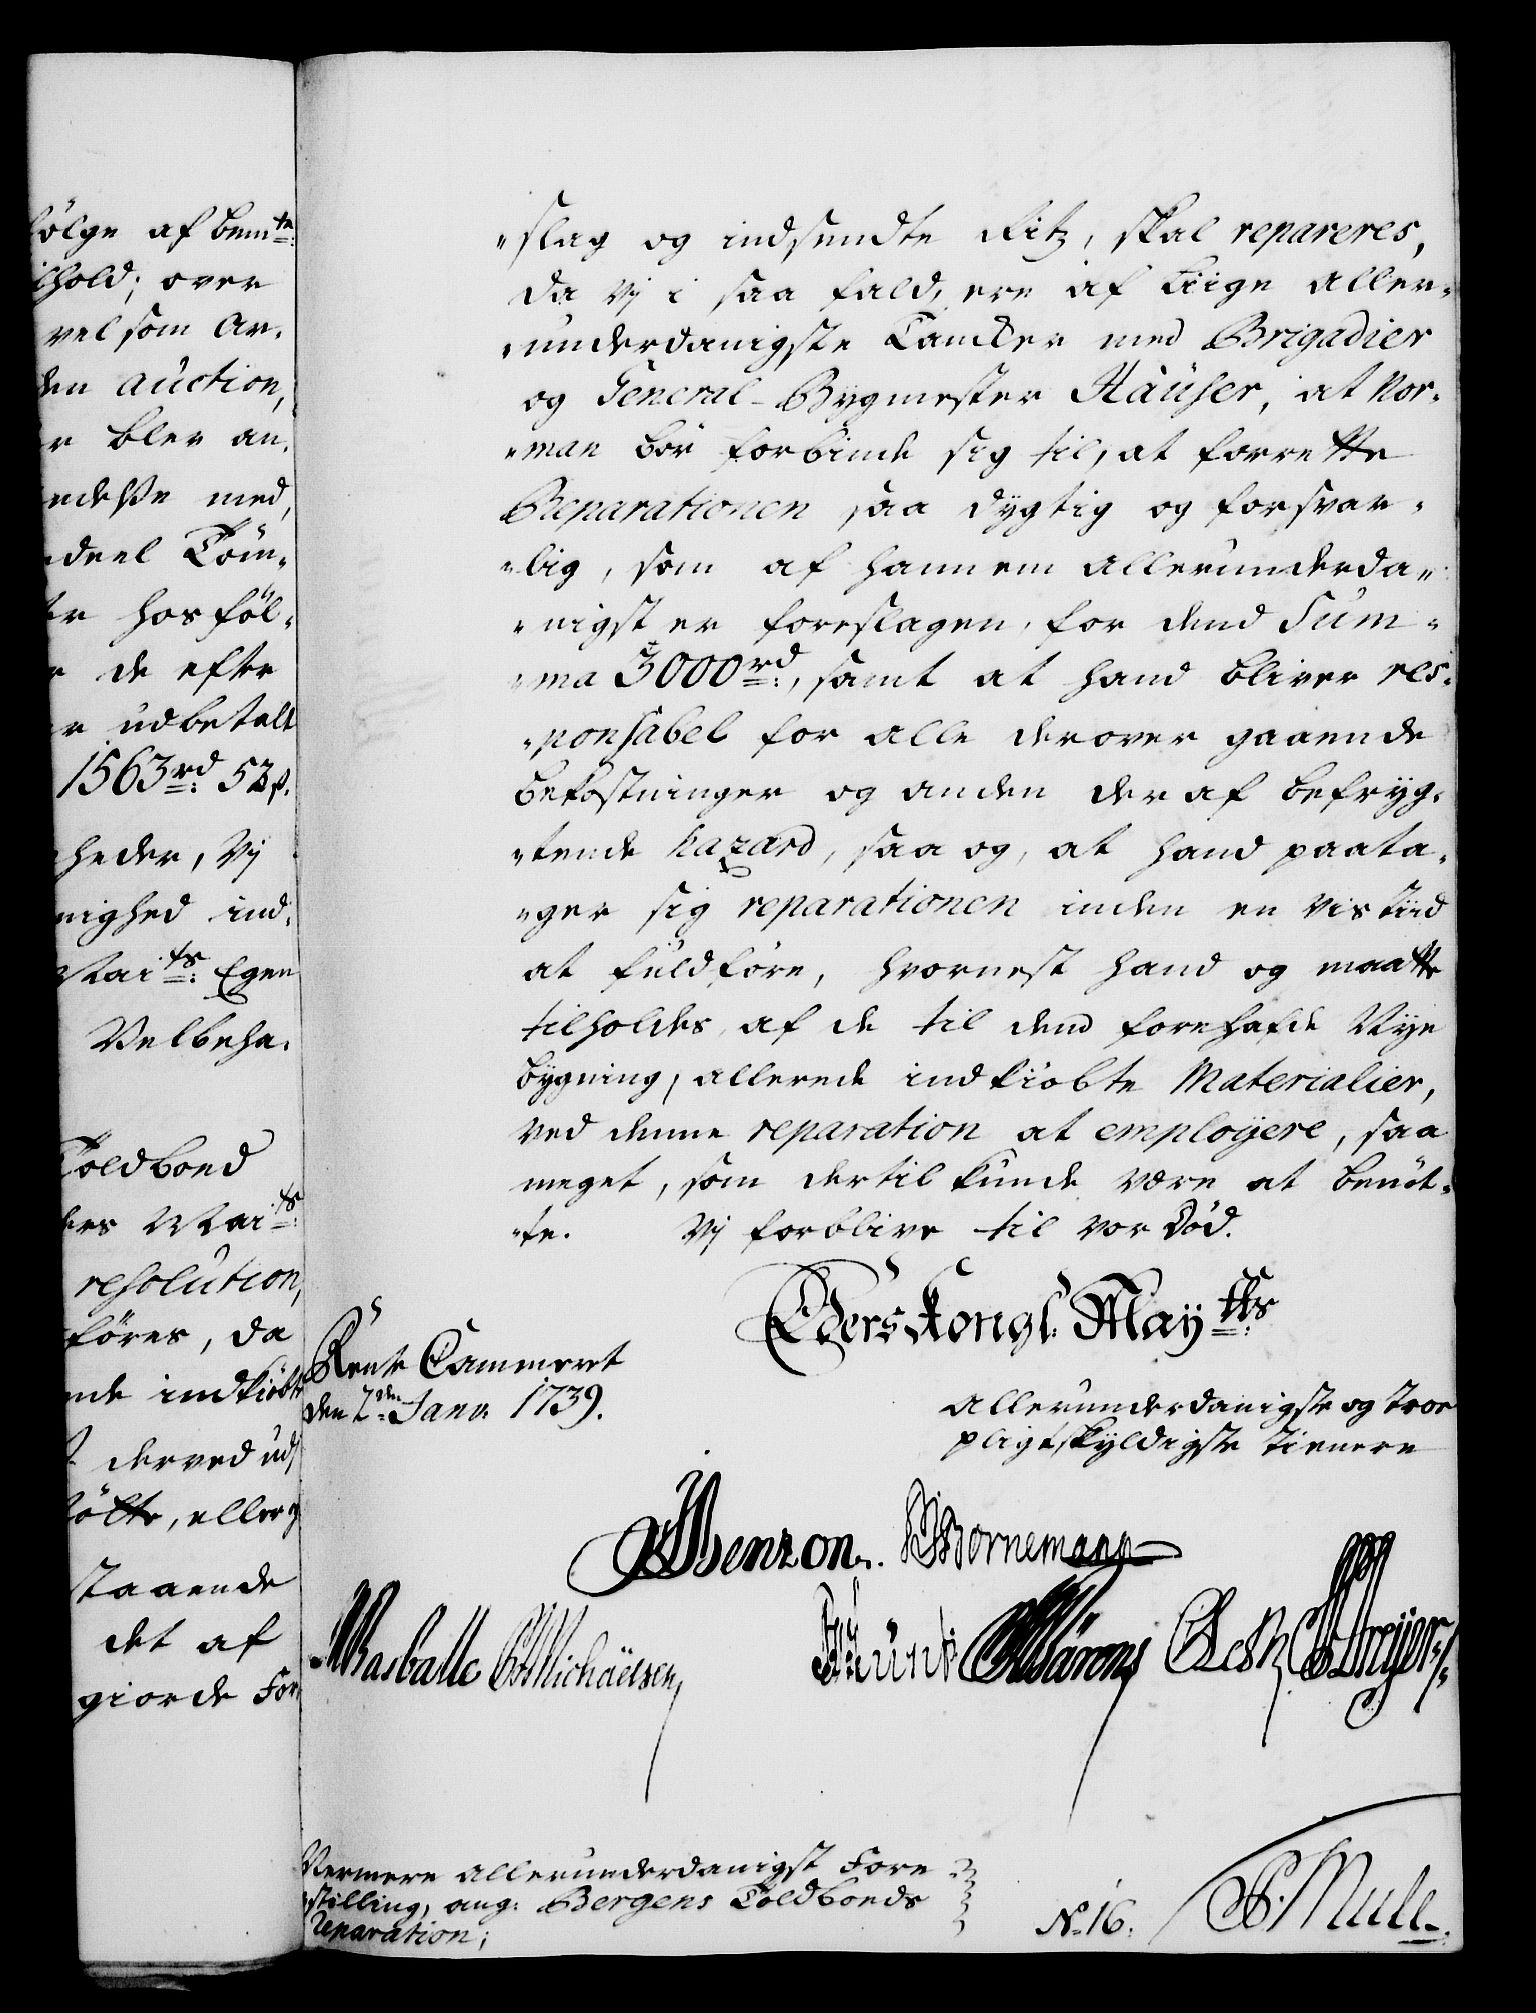 följe af bemte:
hold; over
vel som Ar-
den auction,
r blev an-
ndelse med,
deel Töm-
er hosföl-
r de efter
er udbetalt
1563rd 52 ß.
heder, Vj
nighed ind-
Maits: Egen
Velbeha-
Toldboed
ders Maits:
resolution,
föres, da
nde indkiöbte
t derved ud-
költe, eller
staaende
det af
giorde For-
-slag og indsendte Ritz, skal repareres,
da Vj i saa fald, ere af Liige aller-
-underdanigste Tancker med Brigadier
og General-Bygmester Häuser, at Nor-
-man bör forbinde sig til, at forrette
Reparationen saa dygtig og forsvar-
-lig, som af hannem allerunderda-
-nigst er foreslagen, for dend Sum-
-ma 3000rd:, samt at hand bliver res-
-ponsabel for alle derover gaaende
bekostninger og anden deraf befryg-
-tende hazard, saa og, at hand paata-
-ger sig reparationen inden en vis tiid
at fuldföre, hvornest hand og maatte
tilholdes, af de til dend forehafde Nye
bygning, allerede indkiöbte Materialier,
ved denne reparation at employere, saa
meget, som dertil kunde være at benöt-
-te. Vj forblive til vor Död.
Eders Kongl: Maytts:
Rente Cammeret
den 2den Janv: 1739.
allerunderdanigste og troe
pligtskyldigste tienere
Benzon. Bornemann
Rasballe Michäelsen
Wärons Dreyer
Nermere allerunderdanigst Fore
-stilling, ang: Bergens Toldboeds
Reparation;
No 16.
Mull